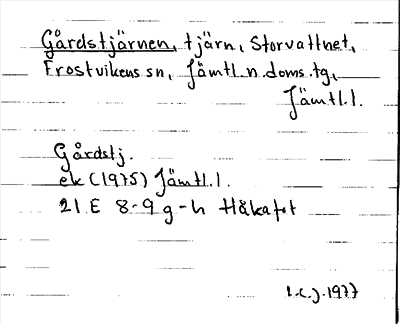 Gårdstjärnen, tjärn, Storvattnet,
Frostvikens sn, Jämtl.n.doms.tg,
Jämtl.l.
Gårdstj.
ek (1975) Jämtl.l.
21 E 8-9 g-h Håkafot
1977